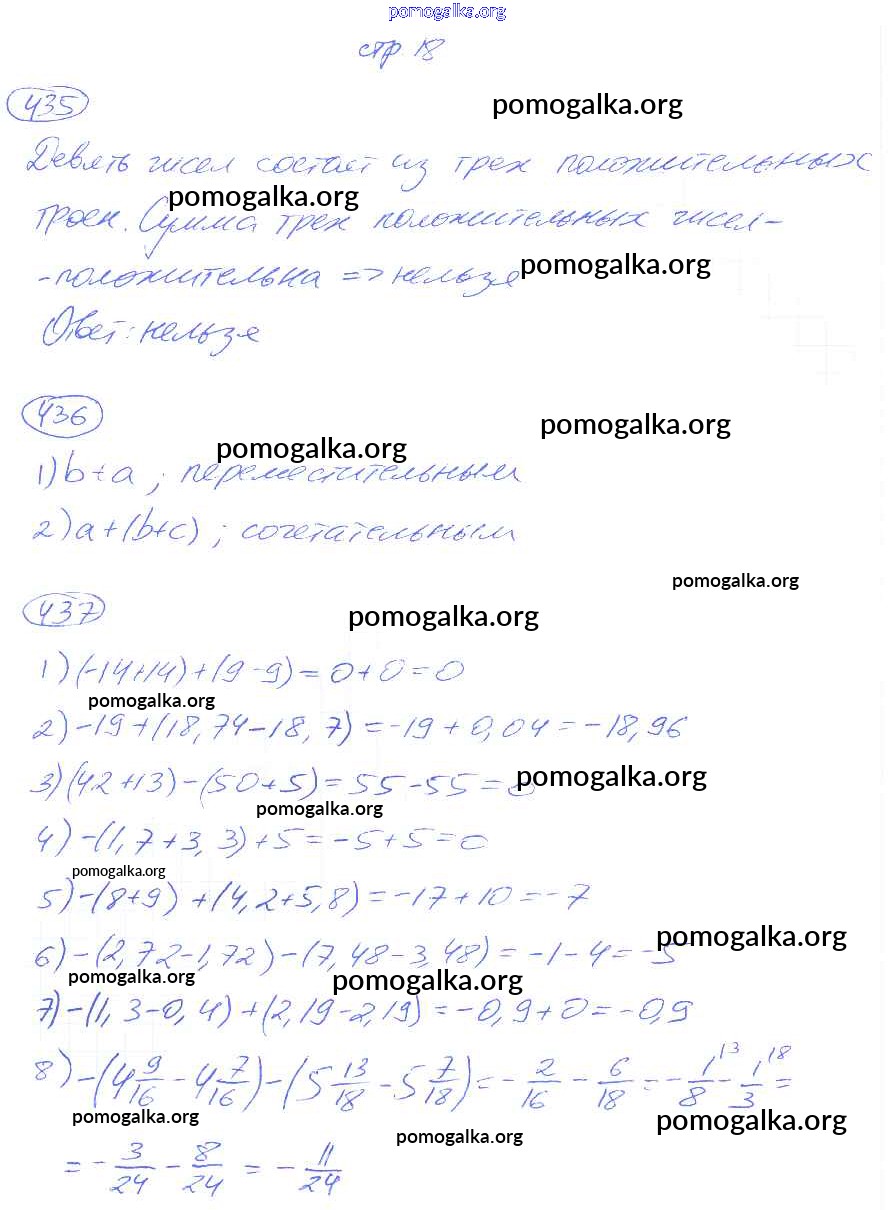 pomogalka.org
стр. 18
435
pomogalka.org
Девять чисел состоят из трех положительных
pomogalka.org
троек. Сумма трех положительных чисел-
-положительна => нельзя
pomogalka.org
Ответ: нельзя
436
pomogalka.org
pomogalka.org
1) b+a ; переместительным
2) a+(b+c) ; сочетательным
pomogalka.org
437
pomogalka.org
1) (-14+14)+(9-9)=0+0=0
pomogalka.org
2) -19+(18,74-18,7)=-19+0,04=-18,96
3) (42+13)-(50+5)=55-55=0
pomogalka.org
pomogalka.org
4) -(1,7+3,3)+5=-5+5=0
pomogalka.org
5) -(8+9)+(4,2+5,8)=-17+10=-7
pomogalka.org
6) -(2,72-1,72)-(7,48-3,48)=-1-4=-5
pomogalka.org
pomogalka.org
7) -(1,3-0,4)+(2,19-2,19)=-0,9+0=-0,9
8) -(4 9/16 - 4 7/16)-(5 13/18 - 5 7/18)=- 2/16 - 6/18 = - 1/8 \3 - 1/3 \8 =
pomogalka.org
pomogalka.org
pomogalka.org
= - 3/24 - 8/24 = - 11/24